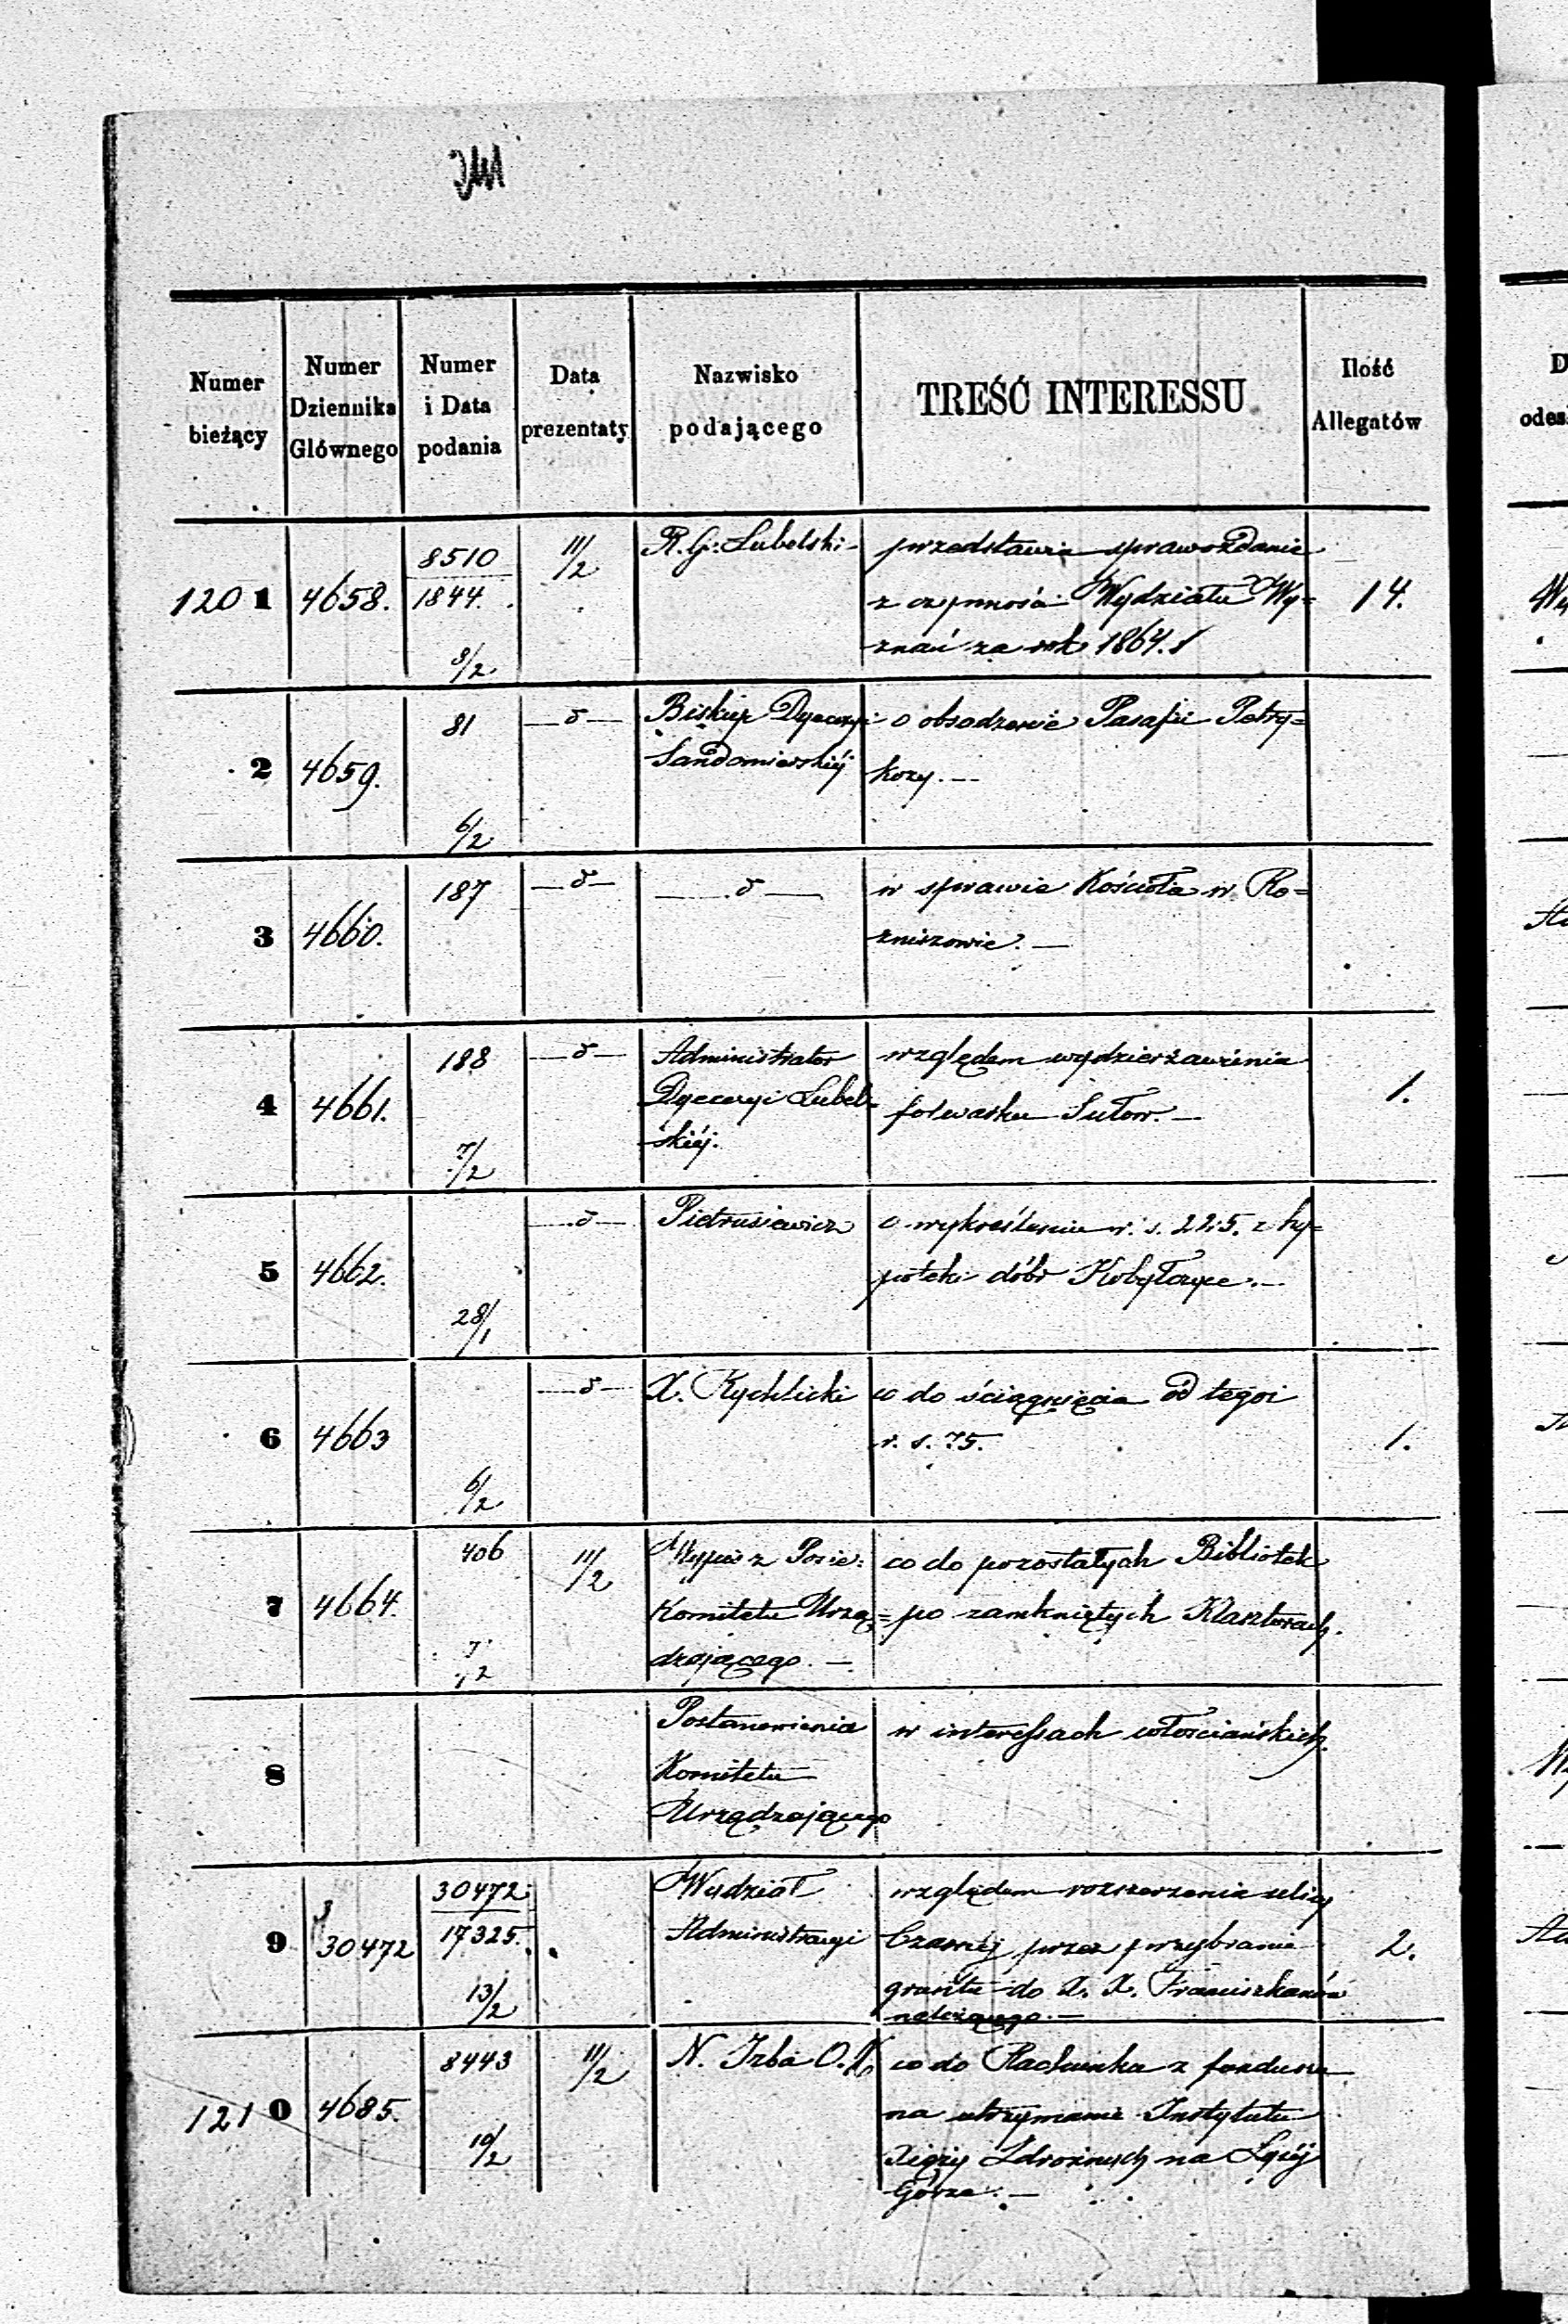 Numer bieżący | Numer Dziennika Głównego | Numer i Data podania | Data prezentaty | Nazwisko podającego | TREŚĆ INTERESSU | Ilość Allegatów
1201 | 4658. | 8510 | 11/2 | R. G. Lubelski | przedstawia sprawozdanie
1844. | z czynności Wydziału Wy= | 14.
8/2 | znań za rok 1864.
2 | 4659. | 81 | —δ— | Biskup Dyecezyi | o obsadzenie Parafii Petry=
Sandomierskiéj | kozy. —
6/2
3 | 4660. | 187 | —δ— | —δ— | w sprawie Kościoła w Ro=
żniszowie. —
4 | 4661. | 188 | —δ— | Administrator | względem wydzierżawienia
Dyecezyi Lubel= | folwarku Sułow. — | 1.
skiéj.
7/2
5 | 4662. | —δ— | Pietrusiewicz | o wykreślenie r. s. 225. z hy=
poteki dóbr Kobyłczyce. —
28/1
6 | 4663 | —δ— | X. Rychlicki | co do ściągnięcia od tegoż
r. s. 75. | 1.
6/2
7 | 4664. | 406 | 11/2 | Wypis z Posie: | co do pozostałych Bibliotek
Komitetu Urzą= | po zamkniętych Klasztorach.
7/2 | dzającego. —
8 | Postanowienia | w interessach włościańskich.
Komitetu
Urządzającego
9 | 30472 | 30472 | Wydział | względem rozszerzenia ulicy
17325. | Administracyi | Czarnéj przez przybranie | 2.
13/2 | gruntu do X. X. Franciszkanów
należącego. —
1210 | 4685. | 8443 | 11/2 | N. Izba O. | co do Rachunku z funduszu
na utrzymanie Instytutu
10/2 | Xięży Zdrożnych na Łyséj
Górze. —